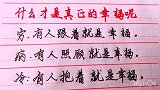 什么才是真正的幸福呢
穷:有人跟着就是幸福。
病:有人照顾就是幸福。
冷:有人抱着就是幸福。